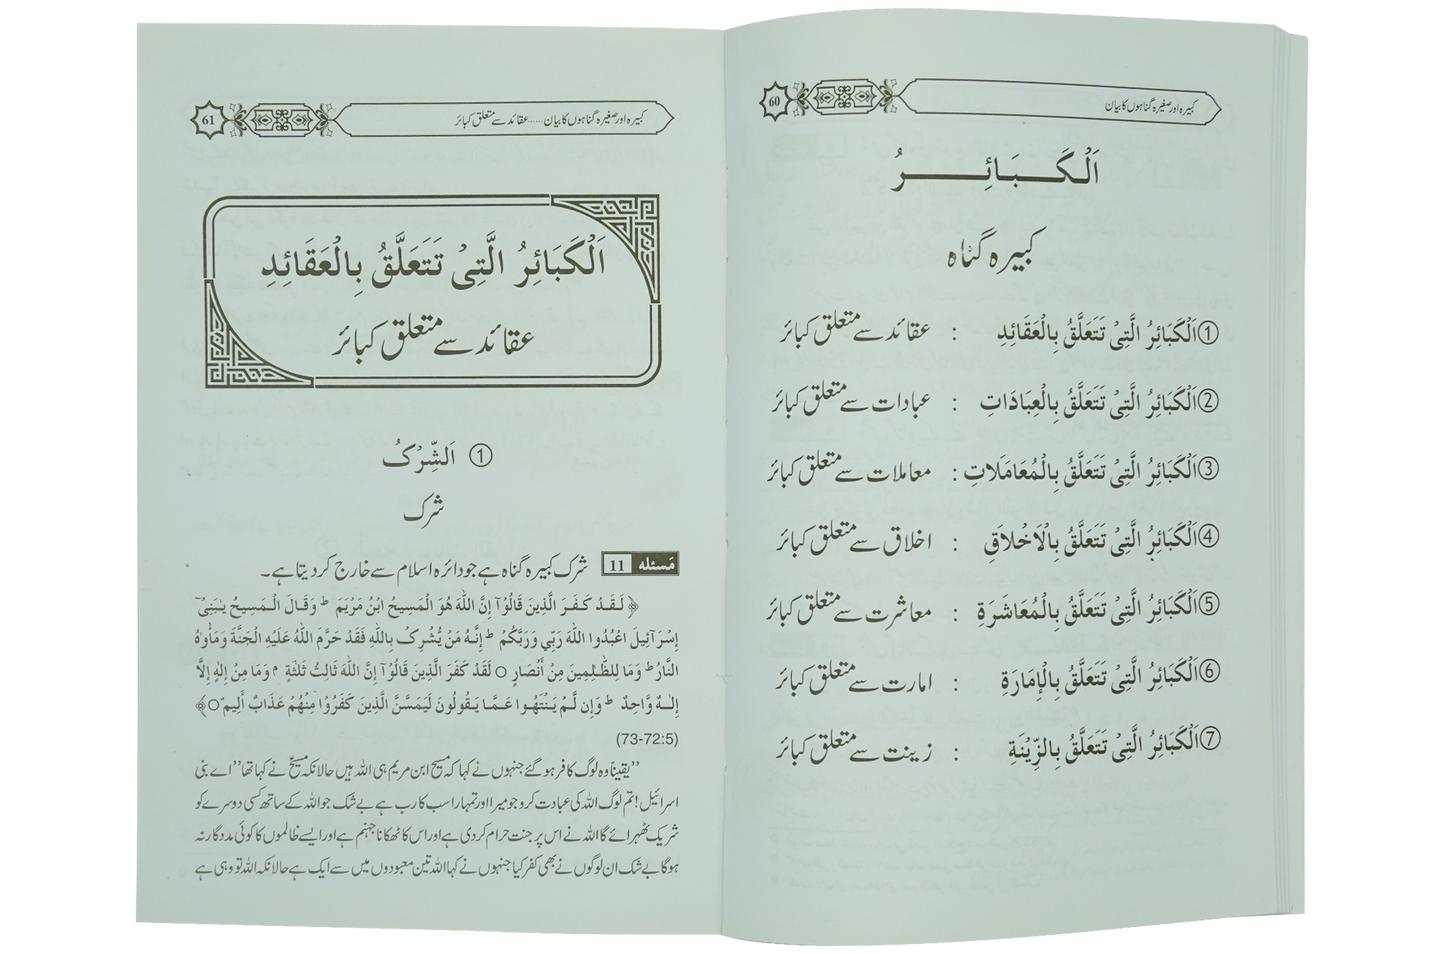 60
کبیرہ اور صغیرہ گناہوں کا بیان
اَلْکَبَائِرُ
کبیرہ گناہ
①اَلْکَبَائِرُ الَّتِیْ تَتَعَلَّقُ بِالْعَقَائِدِ : عقائد سے متعلق کبائر
②اَلْکَبَائِرُ الَّتِیْ تَتَعَلَّقُ بِالْعِبَادَاتِ : عبادات سے متعلق کبائر
③اَلْکَبَائِرُ الَّتِیْ تَتَعَلَّقُ بِالْمُعَامَلَاتِ : معاملات سے متعلق کبائر
④اَلْکَبَائِرُ الَّتِیْ تَتَعَلَّقُ بِالْاَخْلَاقِ : اخلاق سے متعلق کبائر
⑤اَلْکَبَائِرُ الَّتِیْ تَتَعَلَّقُ بِالْمُعَاشَرَةِ : معاشرت سے متعلق کبائر
⑥اَلْکَبَائِرُ الَّتِیْ تَتَعَلَّقُ بِالْإِمَارَةِ : امارت سے متعلق کبائر
⑦اَلْکَبَائِرُ الَّتِیْ تَتَعَلَّقُ بِالزِّیْنَةِ : زینت سے متعلق کبائر
61
کبیرہ اور صغیرہ گناہوں کا بیان ..... عقائد سے متعلق کبائر
اَلْکَبَائِرُ الَّتِیْ تَتَعَلَّقُ بِالْعَقَائِدِ
عقائد سے متعلق کبائر
① اَلشِّرْکُ
شرک
مَسئلہ 11 شرک کبیرہ گناہ ہے جو دائرہ اسلام سے خارج کر دیتا ہے۔
﴿لَقَدْ كَفَرَ الَّذِينَ قَالُوٓا إِنَّ اللّٰهَ هُوَ الْمَسِيحُ ابْنُ مَرْيَمَ ط وَقَالَ الْمَسِيحُ يٰبَنِىٓ
إِسْرَآئِيلَ اعْبُدُوا اللّٰهَ رَبِّي وَرَبَّكُمْ ط إِنَّهٗ مَنْ يُّشْرِكْ بِاللّٰهِ فَقَدْ حَرَّمَ اللّٰهُ عَلَيْهِ الْجَنَّةَ وَمَأْوٰهُ
النَّارُ ط وَمَا لِلظّٰلِمِينَ مِنْ أَنْصَارٍ ○ لَقَدْ كَفَرَ الَّذِينَ قَالُوٓا إِنَّ اللّٰهَ ثَالِثُ ثَلٰثَةٍ م وَمَا مِنْ إِلٰهٍ إِلَّا
إِلٰهٌ وَّاحِدٌ ط وَإِن لَّمْ يَنْتَهُوا عَمَّا يَقُولُونَ لَيَمَسَّنَّ الَّذِينَ كَفَرُوْا مِنْهُمْ عَذَابٌ أَلِيمٌ ○﴾
(73-72:5)
”یقیناً وہ لوگ کافر ہو گئے جنہوں نے کہا کہ مسیح ابن مریم ہی اللہ ہیں حالانکہ مسیح نے کہا تھا ”اے بنی
اسرائیل! تم لوگ اللہ کی عبادت کرو جو میرا اور تمہارا سب کا رب ہے بے شک جو اللہ کے ساتھ کسی دوسرے کو
شریک ٹھہرائے گا اللہ نے اس پر جنت حرام کر دی ہے اور اس کا ٹھکانا جہنم ہے اور ایسے ظالموں کا کوئی مددگار نہ
ہوگا بے شک ان لوگوں نے بھی کفر کیا جنہوں نے کہا اللہ تین معبودوں میں سے ایک ہے حالانکہ اللہ تو وہی ہے